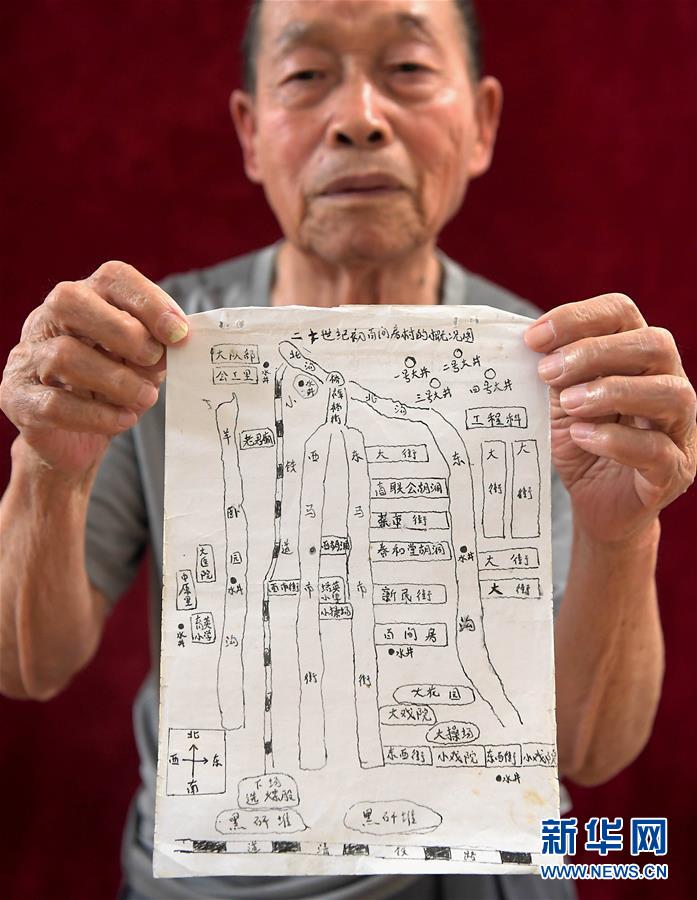 二十世纪初百间房村的概况图
大队部
公工里
水井
北沟
小铁道
水井
北沟
一号大井
二号大井
三号大井
四号大井
工程科
羊卧园沟
老君庙
西马市街
东马市街
大街
商联公胡洞
菜市街
泰和堂胡洞
新民街
百间房
水井
东沟
水井
大街
大街
大街
大街
西胡洞
西市街
培英小学
小操场
大医院
中原里
育英小学
水井
水井
大花园
大戏院
大操场
东西街
小戏院
东西街
小戏院
水井
北
西
东
南
下场
选煤股
黑矸堆
黑矸堆
道清铁路
新华网
WWW.NEWS.CN